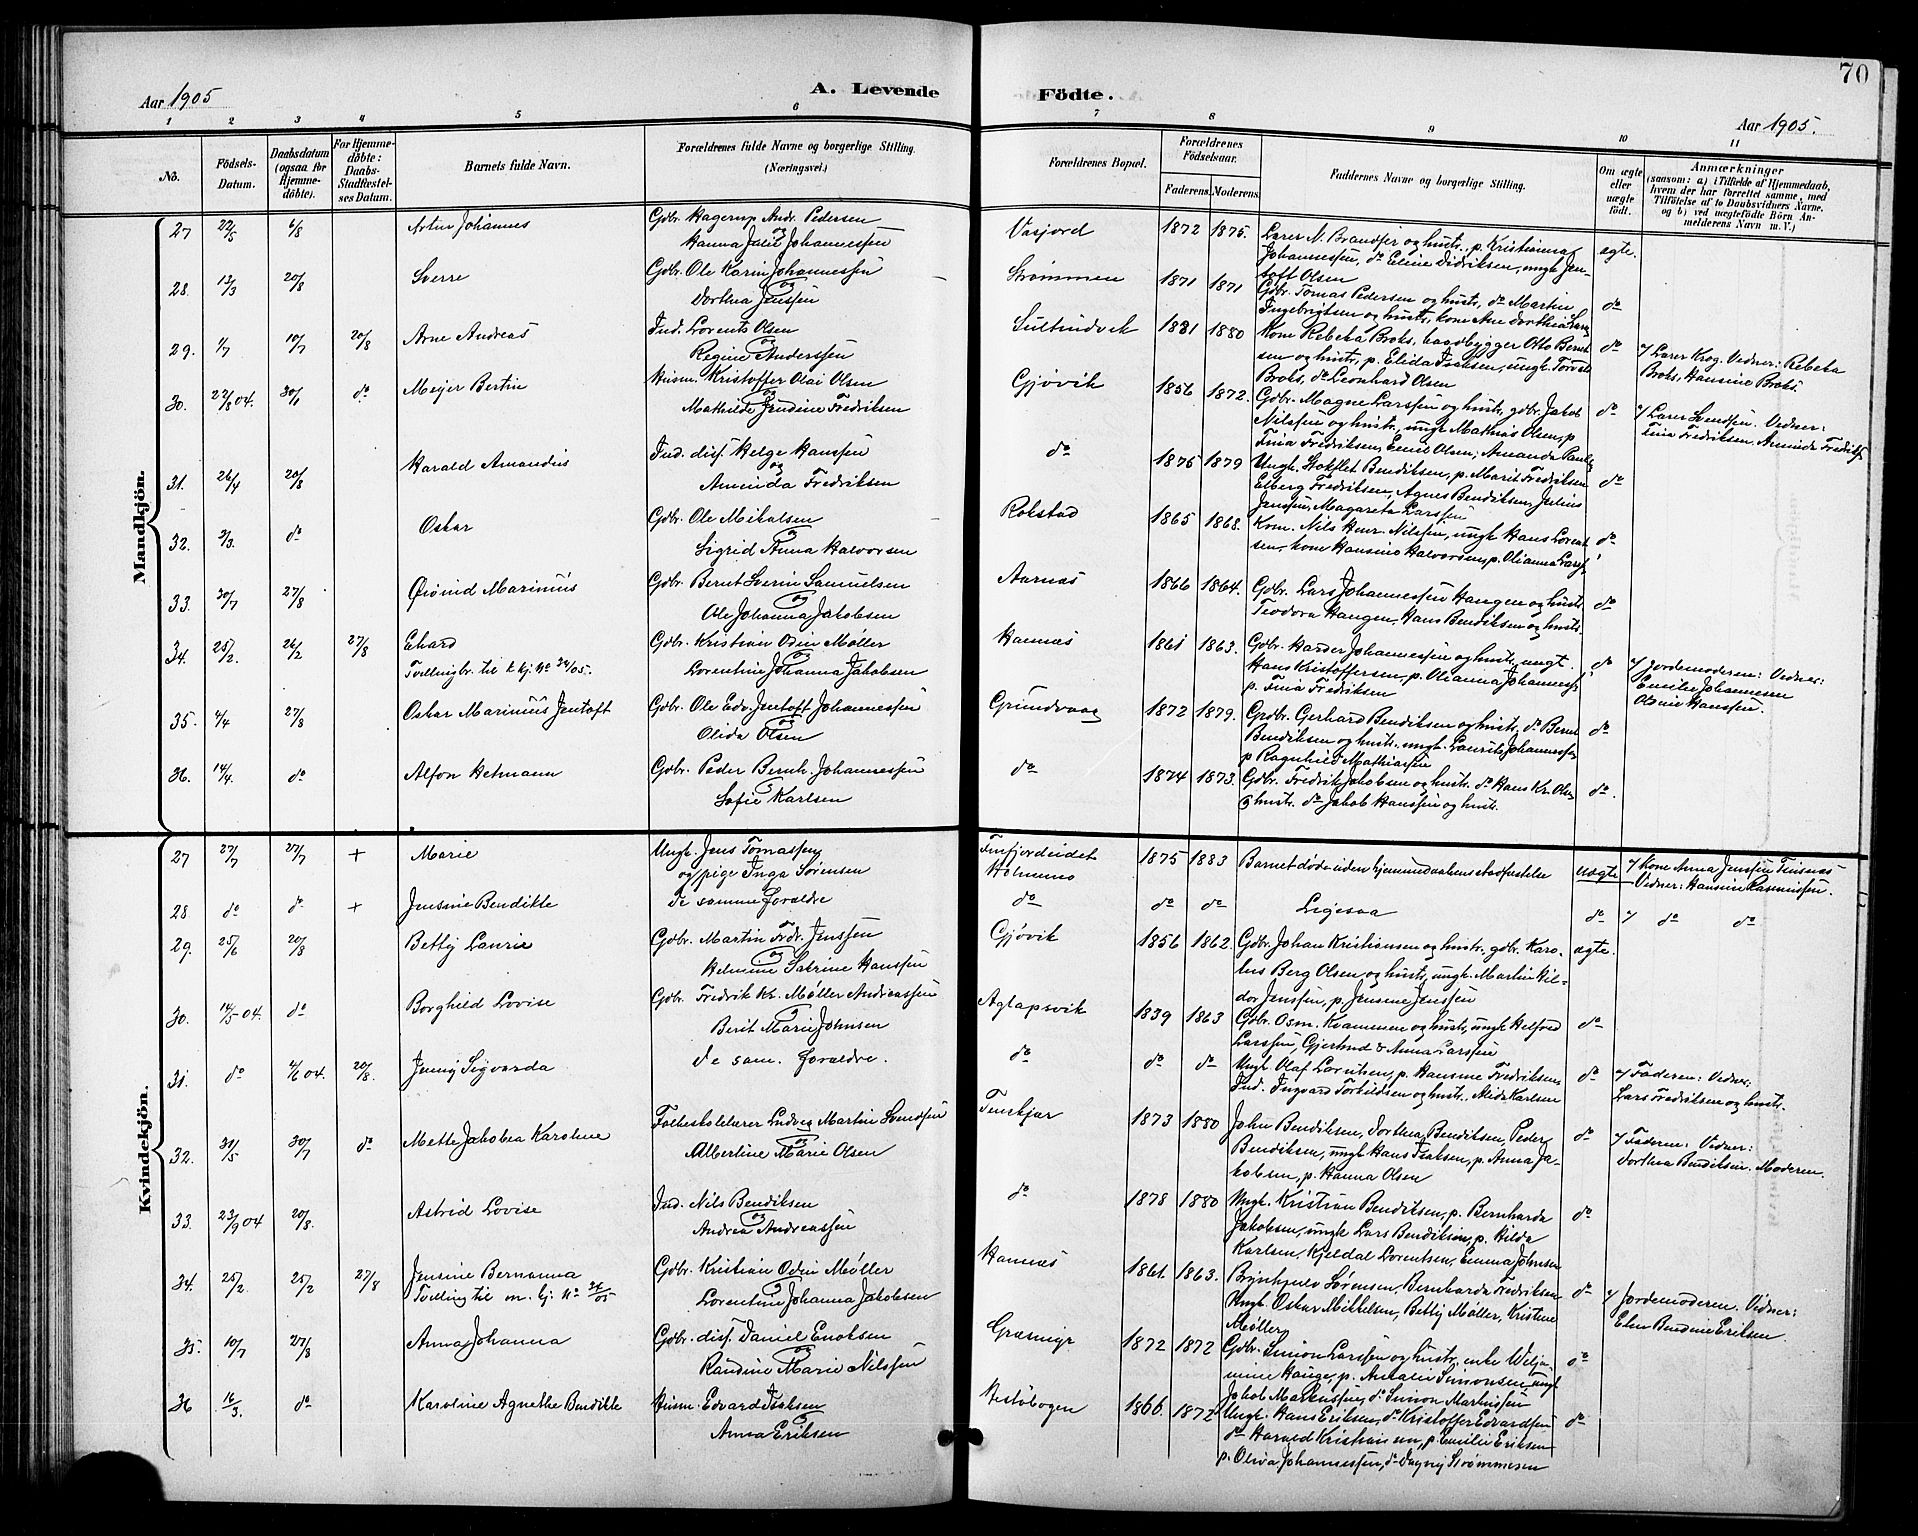 70
Aar 1905
A. Levende
Födte.
Aar 1905.
1 2 3 4 5 6 7 8 9 10 11
No.
Födsels-Datum.
Daabsdatum (ogsaa for Hjemmedöbte).
For Hjemmedöbte: Daabs-Stadfæstelses Datum.
Barnets fulde Navn.
Forældrenes fulde Navne og borgerlige Stilling. (Næringsvei.)
Forældrenes Bopæl.
Forældrenes Födselsaar.
Faderens. Moderens.
Faddernes Navne og borgerlige Stilling.
Om ægte eller uægte födt.
Anmærkninger
(saasom: a) i Tilfælde af Hjemmedaab, hvem der har forrettet samme, med Tilföielse af to Daabsvidners Navne, og b) ved uægtefödte Börn Anmelderens Navn m. V.)
Mandkjön.
27 22/5 6/8 Artur Johannes Gdbr. Hagerup Andr. Pedersen
og
Hanna Johannessen
Vasjord 1872 1875. Lærer N. Brandser og hustr., p. Kristianna
Johannessen, do Eline Didriksen, ungk. Jentoft Olsen
ægte.
28. 13/3 20/8 Sverre Gdbr. Ole Karin Johannessen
og
Dorthea Jenssen
Strømmen 1871 1871 Gdbr. Tomas Pedersen og hustr, do Martin
Ingebrigtsen og hustr, kone Ane Dorthea
do
29. 1/7 10/7 20/8 Arne Andreas Ind. Lorents Olsen
og
Regine Anderssen
Sultindvik 1881 1880 Kone Rebeka Broks, baadbygger Otto Berntsen og hustr, p. Elida Isaksen, ungk.
Broks, do Leonhard Olsen
do
v/ Lærer Krog. Vedner: Rebeka
Broks, Hansine Broks.
30. 22/8 04. 30/1 do Meyer Bertin Husm. Kristoffer Olai Olsen
og
Mathilde Jendine Fredriksen
Gjøvik 1856 1872. Gdbr. Magne Larssen og hustr, gdbr. Jakob
Nilssen og hustr, ungk. Mathias Olsen, p
Tina Fredriksen, Emil Olsen, Amanda
do
v/ Lærer Svendsen. Vedner:
Tina Fredriksen, Aminda Fredriks.
31. 26/4 20/8 Harald Amandus Ind. disp. Helge Hanssen
og
Aminda Fredriksen
do 1875 1879 Ungk. Stokflet Bendiksen, p. Marit Fredriksen
Elberg Fredriksen, Agnes Bendiksen, Julius
Jenssen, Magareta Larssen
do
32. 3/3. do Oskar Gdbr. Ole Mikalsen
og
Sigrid Anna Halvorsen
Rokstad 1865 1868. Kom. Nils Henr. Nilssen, ungk. Hans Lorentsen, kone Hansine Halvorsen, p. Olianna Larss.
do
33. 30/7 27/8 Øivind Marinius Gdbr. Bernt Sverin Samuelsen
og
Ole Johanna Jakobsen
Aarnæs 1866 1864. Gdbr. Lars Johannessen Haugen og hustr.
Teodora Haugen, Hans Bendiksen og hustr.
do
34. 25/2. 26/2 27/8 Ehard
Tvillingbr. til k kj. No 34/05.
Gdbr. Kristian Odin Møller
og
Lorentine Johanna Jakobsen
Hannæs 1861 1863. Gdbr. Harder Johannessen og hustr, ungk.
Hans Kristoffersen, p. Olianna Johanness.
p. Tina Fredriksen
do
v/ Jordemoderen: Vedner:
Emilie Johannesen
Olsine Hanssen.
35. 4/4 27/8 Oskar Marinius Jentoft Gdbr. Ole Edv. Jentoft Johannessen
og
Olida Olsen
Grundvaag 1872 1879. Gdbr. Gerhard Bendiksen og hustr, do Bernt
Bendiksen og hustr. ungk. Laurits Johannessen
p Ragnhild Mathiassen
do
36. 14/4. do Alfon Hetmann Gdbr. Peder Bernh. Johannessen
og
Sofie Karlsen
do 1874 1873. Gdbr. Fredrik Jakobsen og hustr. do Hans Kr. Olsen
og hustr. do Jakob Hanssen og hustr.
do.
Kvindekjön.
27 27/7 27/7 + Marie Ungk. Jens Tomassen
og pige Inga Sørensen
Finfjordeidet
Holmmo 1875 1883 Barnet døde uden hjemmedaabens stadfæstelse
uægte v/ Kone Anna Jenssen
Vedner: Hansine Rasmussen.
28 do do + Jensine Bendikte De samme forældre
do do do Ligesaa do v/ do do
29. 25/6 20/8 Betty Laurie Gdbr. Martin Fredr. Jenssen
og
Helmine Sabrine Hanssen
Gjøvik 1856 1862. Gdbr. Johan Kristiansen og hustr, gdbr. Karolus Berg Olsen og hustr, ungk. Martin Hildor Jenssen, p. Jensine Jenssen
ægte.
30. 14/5 04. do Borghild Lovise Gdbr. Fredrik Kr. Møller Andreassen
og
Berit Marie Johnsen
Aglapsvik 1839 1863 Gdbr. Osm. Kvammen og hustr, ungk. Helfred
Larssen, Gjertrud & Anna Larssen
do
31. do 4/6 04. 20/8. Jenny Sigvarda De sam. forældre.
do do do Ungk. Olaf Lorentsen, p. Hansine Fredriksen
Ind. Ingvard Torkildsen og hustr. Alida Karlsen
do v/ Faderen: Vedner:
Lars Fredriksen og hustr.
32. 31/5 30/7 do Mette Jakobea Karoline Folkeskolelærer Ludvig Martin Svendsen
og
Albertine Marie Olsen
Finskjær 1873 1880 John Bendiksen, Dorthea Bendiksen, Peder
Bendiksen, ungk. Hans Isaksen, p. Anna Jakobsen, p. Hanna Olsen
do v/ Faderen: Vedner:
Dorthea Bendiksen. Moderen.
33. 23/9 04 20/8. Astrid Lovise Ind. Nils Bendiksen
og
Andrea Andreassen
do 1878 1880 Ungk. Kristian Bendiksen, p. Bernharda
Jakobsen, ungk. Lars Bendiksen, p. Hilda
Karlsen, Kjeldal Lorentsen, Emma Johnsen
do
34. 25/2. 25/2 27/8 Jensine Bernanna
Tvilling til m. kj. No 34/05
Gdbr. Kristian Odin Møller
og
Lorentine Johanna Jakobsen
Hannæs 1861. 1863. Brynhjulv Sørensen, Bernharda Fredriksen
Ungk. Oskar Mikkelsen, Betty Møller, Kristine
Møller
do v/ Jordemoderen. Vidner:
Elen Berdine Eriksen.
35. 10/7 27/8 Anna Johanna Gdbr. disp. Daniel Enoksen
og
Randine Marie Nilssen
Græsmyr 1872 1872 Gdbr. Simon Larssen og hustr, enke
Hauge, p. Amalie Simonsen, ungk
Jakob Markussen, do Simon Martinssen
do
36 16/3. do Karoline Agnethe Bendikte Husm. Edvard Isaksen
og
Anna Eriksen
Hestøbogen 1866. 1872 Ungk. Hans Eriksen, do Kristoffer Edvardsen
do Harald Kristiansen, p. Emilie Eriksen
p. Oliva Johannessen, do Dagny Strømmesen
do